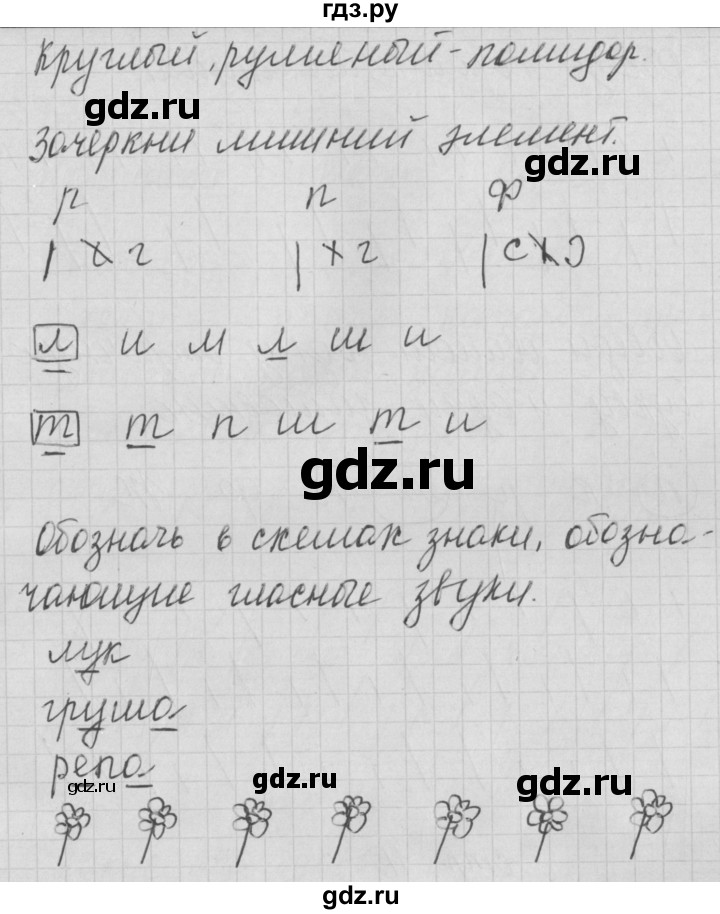 гдз.ру
Круглый, румяный - помидор.
gdz.ru
Зачеркни лишний элемент.
gdz.ru
р п ф
л и м л ш и
т т п ш т и
gdz.ru
Обозначь в схемах знаки, обозна-
чающие гласные звуки.
лук
груша
репа
gdz.ru gdz.ru gdz.ru
gdz.ru